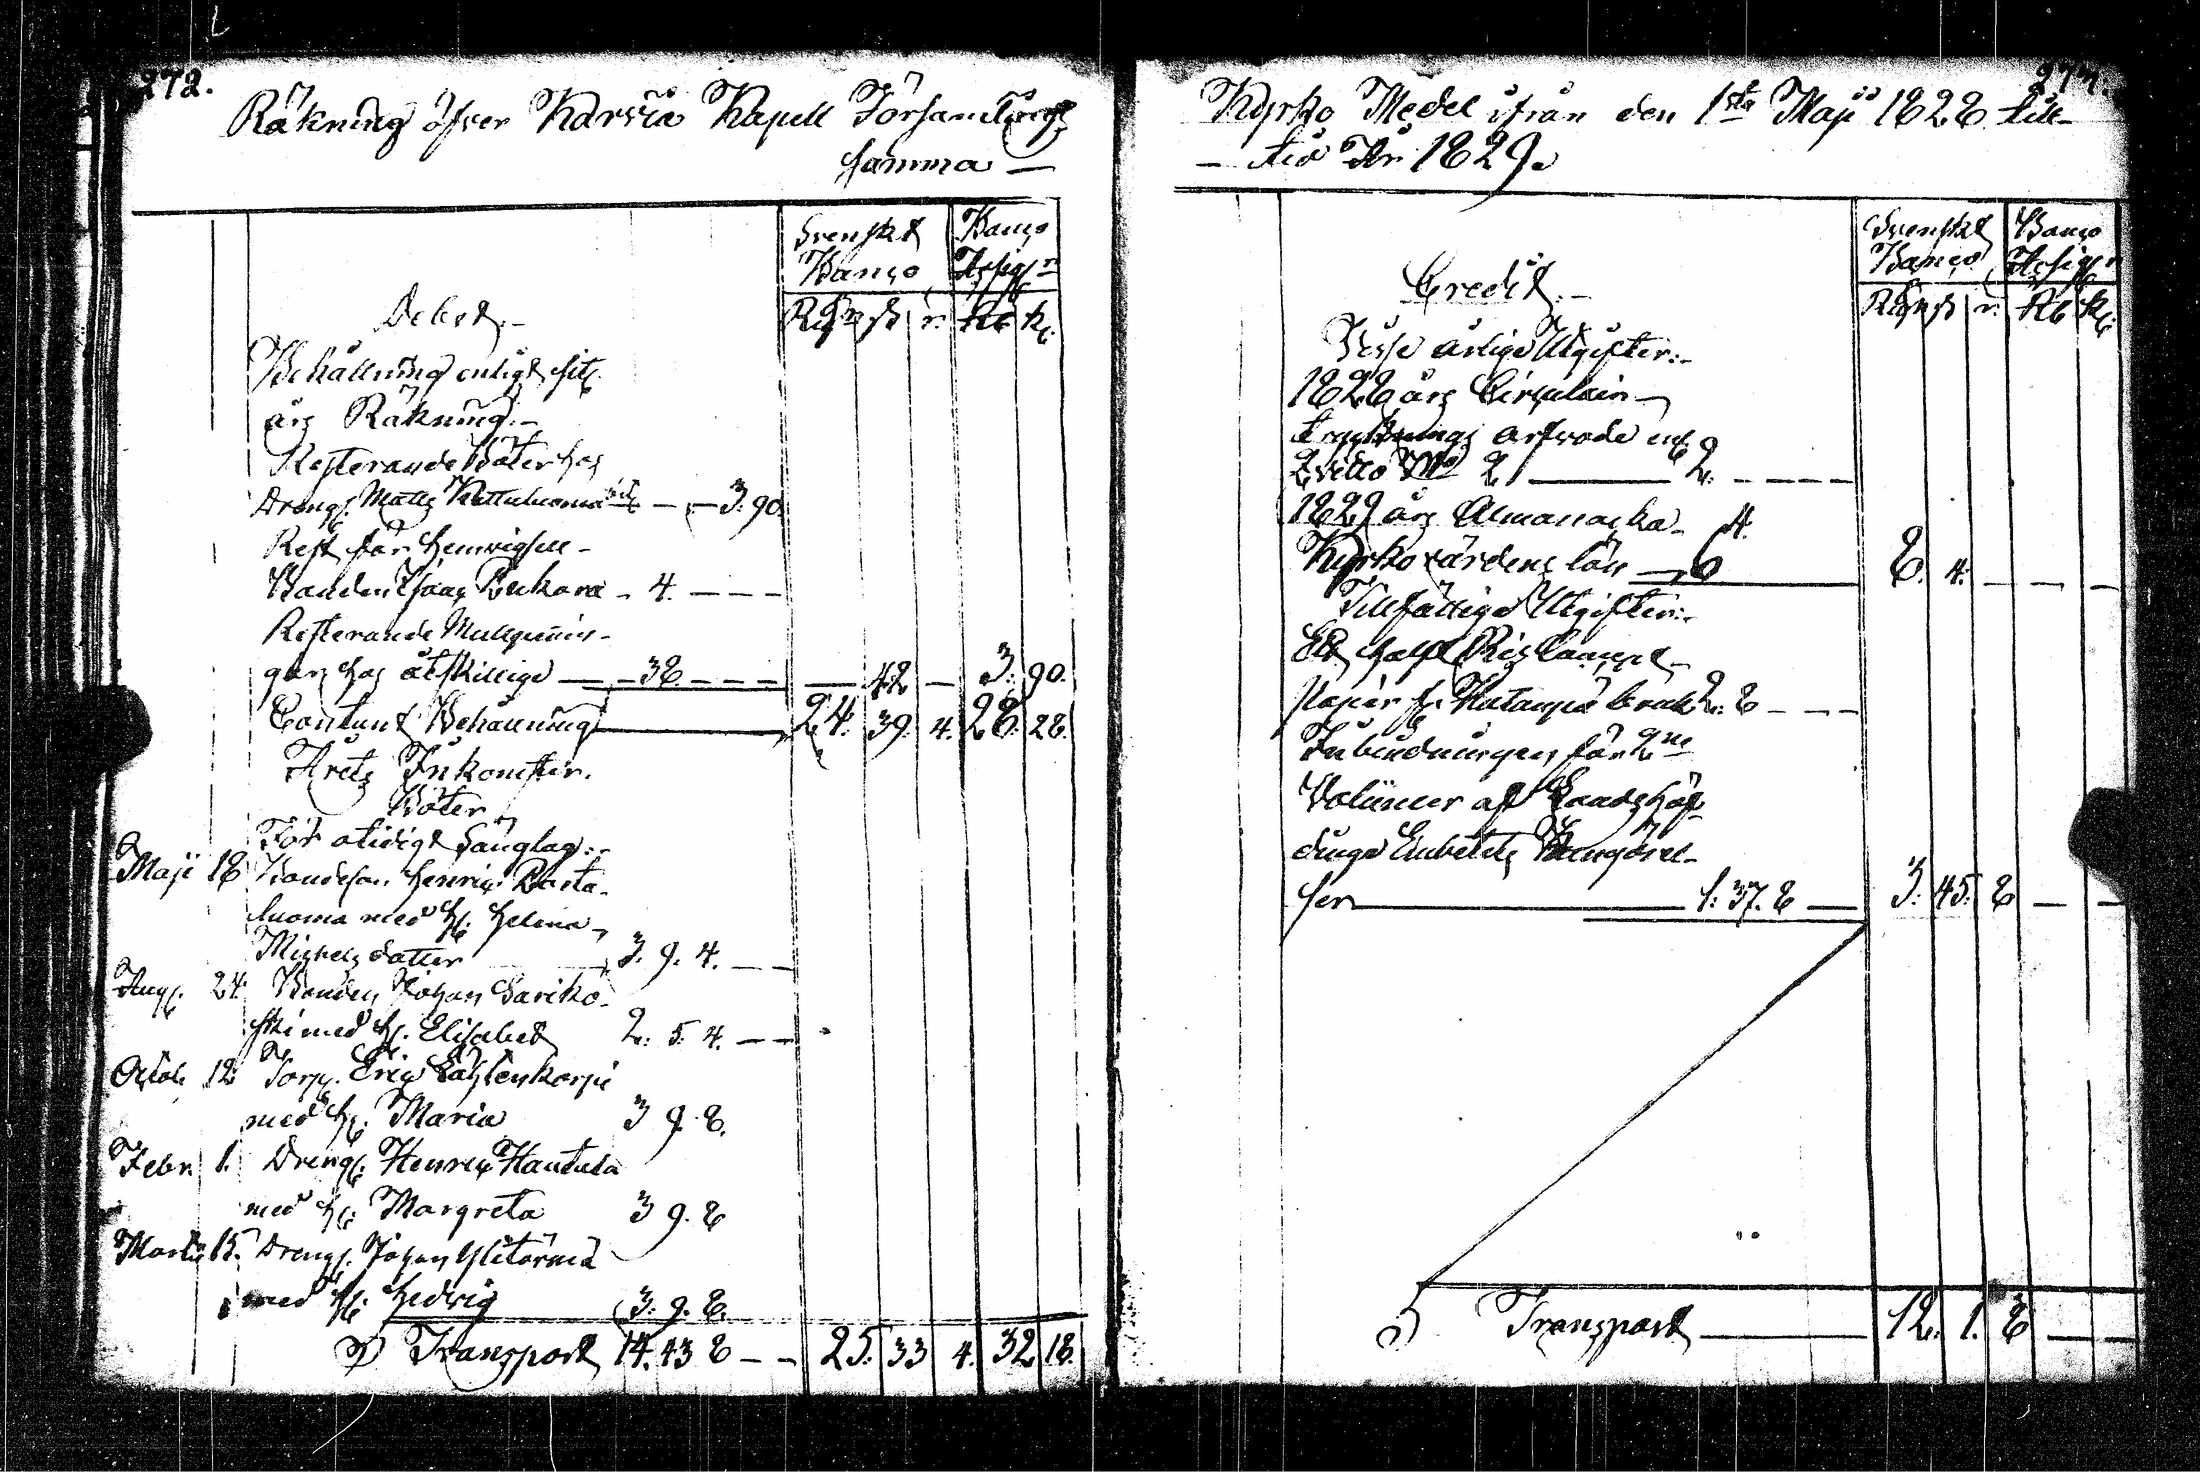 272.
Räkning öfver Karvia Kapell Församlings
samma —
Svenskt Banco
Banco Assign
Debet.-
R sk r. Rb k.
Behållning enligt sist
års Räkning.-
Resterande Böter hos
Drengs. Matts — — 3. 90.
Rest för
Bonden Isaac - 4. — — —
Resterande
hos åtskillige — - 38. — — — — 42 — 3. 90.
Contant Behållning — 24. 39. 4. 28. 28.
Årets Inkomster.
Böter
För otidigt Sänglag.-
Maji 18 Bondeson Henric
luoma med H. Helena
Michelsdotter 3. 9. 4. — —
Aug. 24. Bonden Johan Sariko-
ski med H. Elisabet 2. 5. 4. — —
Octob. 12 Torp. Eric Lähteenkorpi
med H. Maria 3 9. 8.
Febr. 1. Drengs. Henric Hautala
med H. Margreta 3 9. 8
Martii 15. Drengs. Johan Ylitörmä
med H. Hedvig 3. 9. 8.
Transport 14. 43 8 — — 25. 33 4. 32 18.
273.
Kyrko Medel ifrån den 1sta Maji 1828 till
— tid År 1829.
Svenskt Banco
Banco Assign
Credit.-
R sk r. Rb k.
Visse årlige Utgifter.-
1828 års Circulair
trycknings arfvode enl.
Qvitto No 2 — 2. — — — —
1829 års Almanacka - 4.
Kyrkovärdens lön — 6 8. 4. — — —
Tillfällige Utgifter.-
Ett halft Ris
papier 2. 8 — — —
Inbindningen för 2ne
Volumer af Landshöf-
dinge Embetets Kungörel-
ser — 1. 37. 8 — 3. 45. 8 — —
Transport — 12. 1. 8 — —